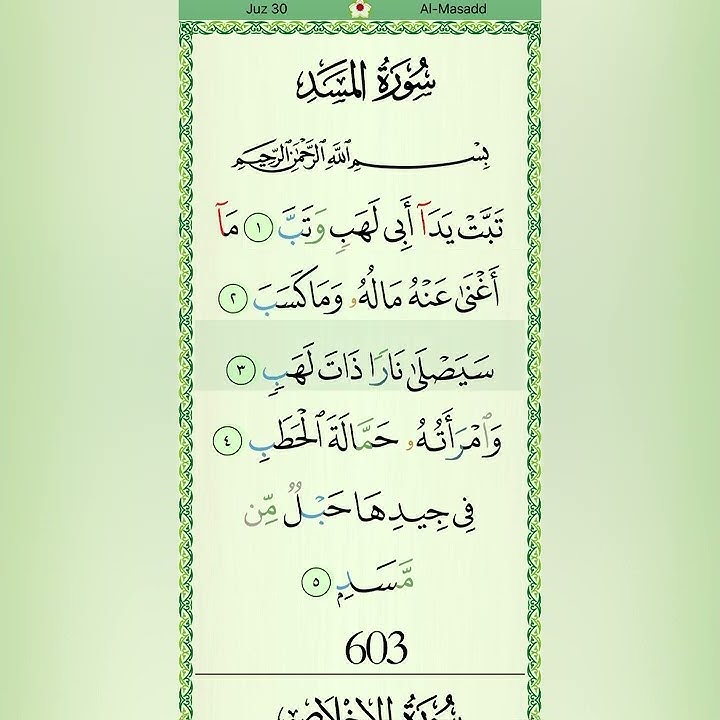 Juz 30 Al-Masadd
سُورَةُ المَسَدِ
بِسْمِ اللَّهِ الرَّحْمَٰنِ الرَّحِيمِ
تَبَّتْ يَدَآ أَبِى لَهَبٍ وَتَبَّ ١ مَآ
أَغْنَىٰ عَنْهُ مَالُهُۥ وَمَا كَسَبَ ٢
سَيَصْلَىٰ نَارًا ذَاتَ لَهَبٍ ٣
وَٱمْرَأَتُهُۥ حَمَّالَةَ ٱلْحَطَبِ ٤
فِى جِيدِهَا حَبْلٌ مِّن
مَّسَدٍۭ ٥
603
سُورَةُ الإخلاص